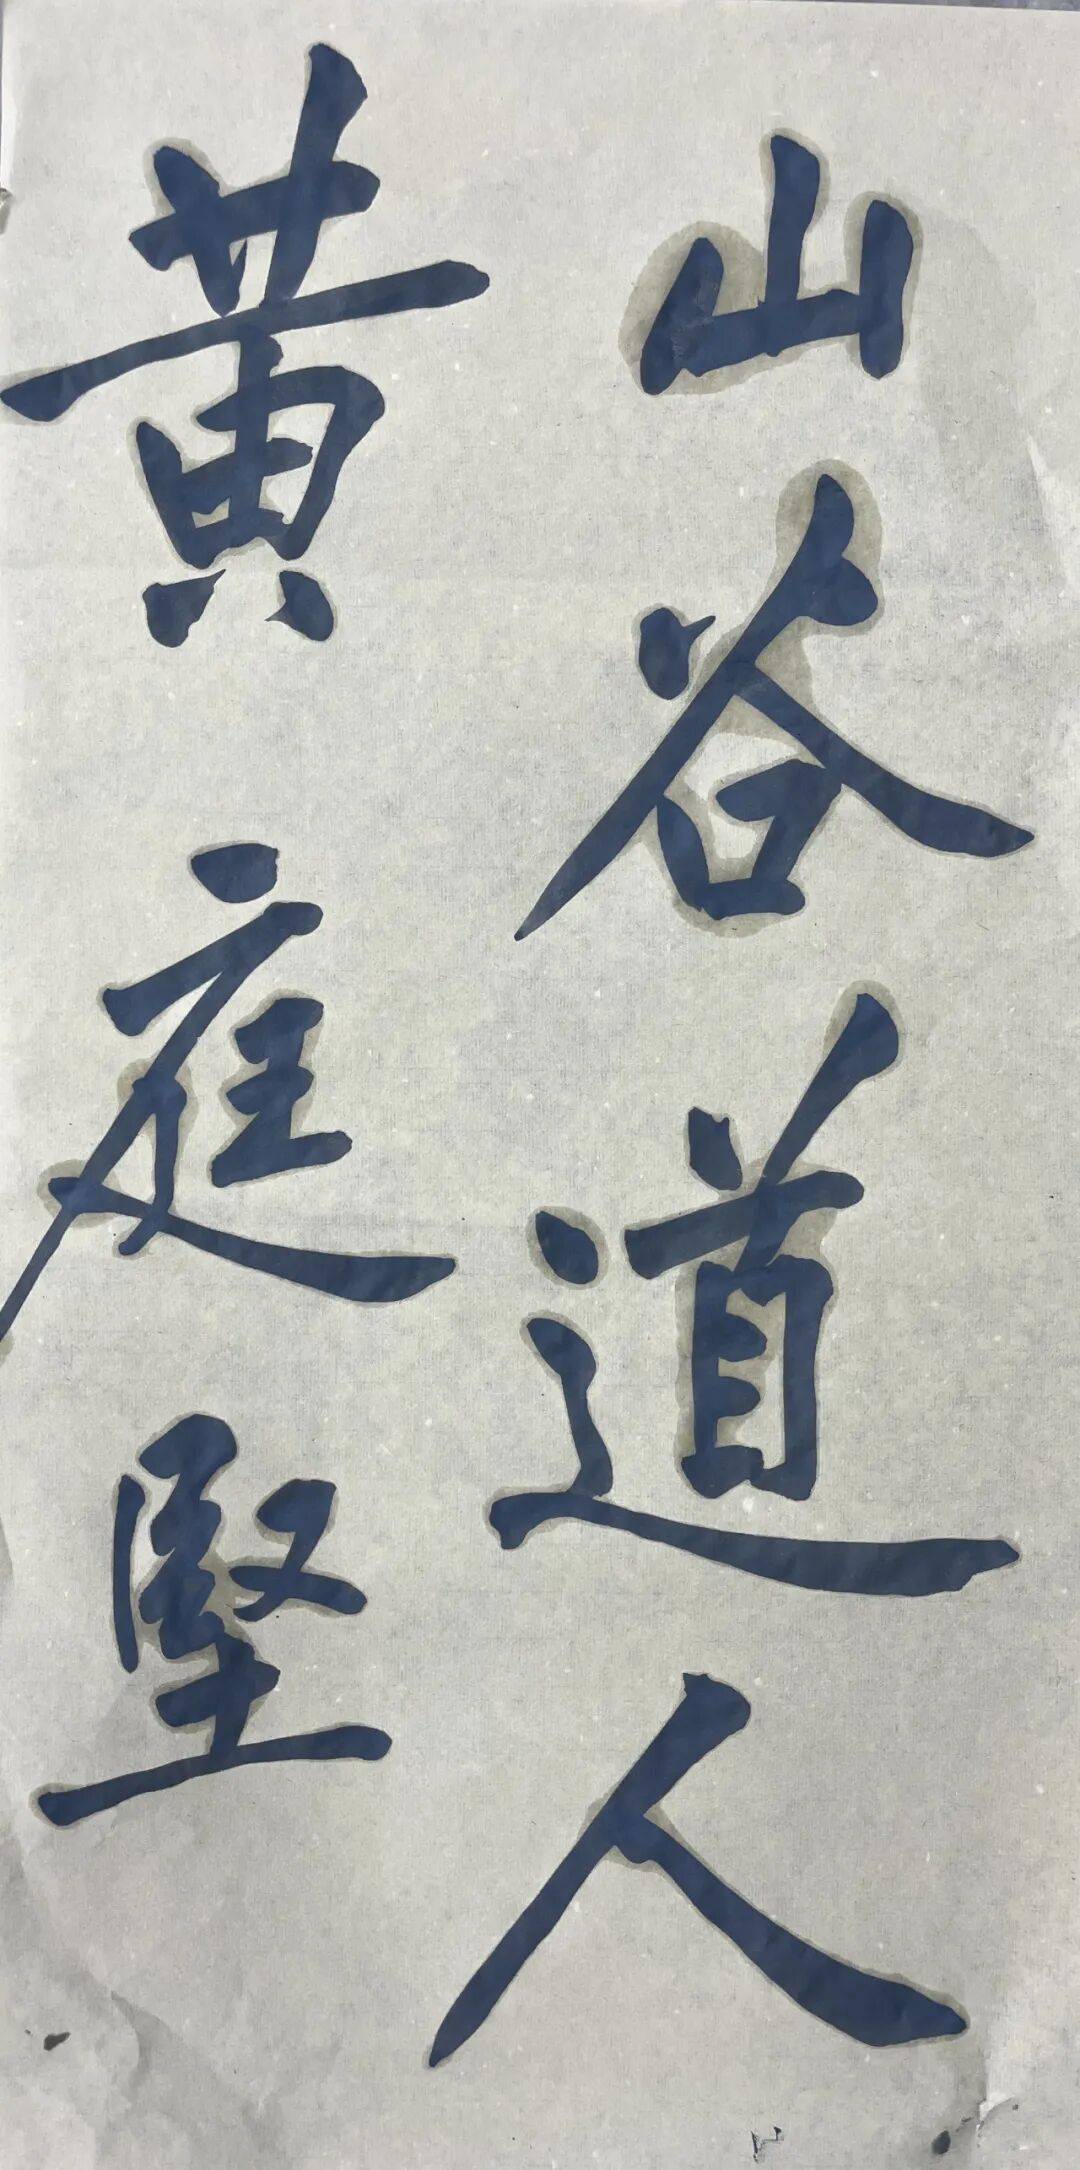 山谷道人
黄庭堅